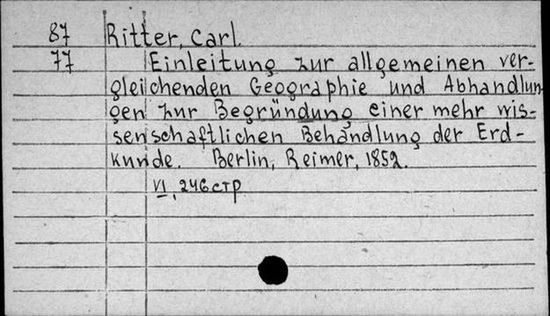 87 Ritter, Carl.
77 Einleitung zur allgemeinen ver-
gleichenden Geographie und Abhandlun
gen zur Begründung einer mehr wis-
senschaftlichen Behandlung der Erd-
kunde. Berlin, Reimer, 1852.
VI, 246 стр